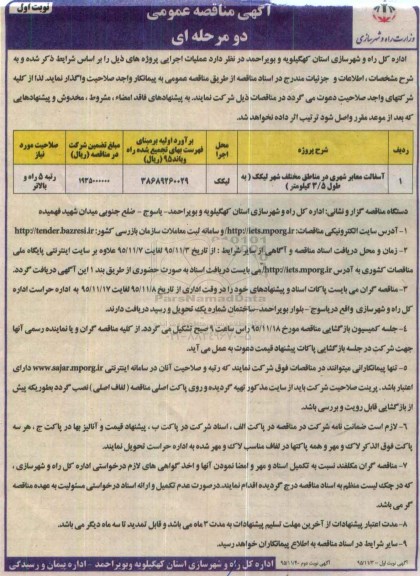 نوبت اول
آگهی مناقصه عمومی
دو مرحله ای
وزارت راه و شهرسازی
اداره کل راه و شهرسازی استان کهگیلویه و بویراحمد در نظر دارد عملیات اجرایی پروژه های ذیل را بر اساس شرایط ذکر شده و به
شرح مشخصات ، اطلاعات و جزئیات مندرج در اسناد مناقصه از طریق مناقصه عمومی به پیمانکار واجد صلاحیت واگذار نماید. لذا از کلیه
شرکتهای واجد صلاحیت دعوت می گردد در مناقصات ذیل شرکت نمایند. به پیشنهادهای فاقد امضاء ، مشروط ، مخدوش و پیشنهادهایی
که بعد از موعد مقرر واصل شود ترتیب اثر داده نخواهد شد.
ردیف	شرح پروژه	محل اجرا	برآورد اولیه برمبنای فهرست بهای تجمیع شده راه وباند۹۵ (ریال)	مبلغ تضمین شرکت در مناقصه (ریال)	صلاحیت مورد نیاز
۱	آسفالت معابر شهری در مناطق مختلف شهر لیکک ( به طول ۳/۵ کیلومتر )	لیکک	۳۸۶۸۹۲۶۰۰۲۹	۱۹۳۵۰۰۰۰۰۰	رتبه ۵ راه و بالاتر
دستگاه مناقصه گزار و نشانی: اداره کل راه و شهرسازی استان کهگیلویه و بویراحمد- یاسوج - ضلع جنوبی میدان شهید فهمیده
۱- آدرس سایت الکترونیکی مناقصات: http://iets.mporg.ir/و سامانه ثبت معاملات سازمان بازرسی کشور: http://tender.bazresi.ir
۲- زمان و محل دریافت اسناد مناقصه و آگاهی از سایر شرایط : از تاریخ ۹۵/۱۱/۳ لغایت ۹۵/۱۱/۷ علاوه بر سایت اینترنتی پایگاه ملی
مناقصات کشوری به آدرس http://iets.mporg.ir/ می بایست دریافت اسناد به صورت حضوری از طریق بند ۱ این آگهی دریافت گردد.
۳- مناقصه گران می بایست پاکات اسناد و پیشنهادهای خود را در وقت اداری از تاریخ ۹۵/۱۱/۸ لغایت ۹۵/۱۱/۱۷ به اداره حراست اداره
کل راه و شهرسازی واقع دریاسوج- بلوار بویراحمد-ساختمان شماره یک تحویل و رسید دریافت دارند.
۴- جلسه کمیسیون بازگشایی مناقصه مورخ ۹۵/۱۱/۱۸ راس ساعت ۹ صبح تشکیل می گردد. از کلیه مناقصه گران و یا نماینده رسمی آنها
جهت شرکت در جلسه بازگشایی پاکات پیشنهاد قیمت دعوت به عمل می آید.
۵- تنها پیمانکارانی میتوانند در مناقصات فوق شرکت نمایند که رتبه و صلاحیت آنان در سامانه اینترنتی www.sajar.mporg.ir دارای
اعتبار باشد. پرینت صلاحیت شرکت باید از سایت مذکور تهیه گردیده و روی پاکت اصلی مناقصه (لفاف اصلی) نصب گردد بطوریکه پیش
از بازگشایی قابل رویت و بررسی باشد.
۶- لازم است ضمانت نامه شرکت در مناقصه در پاکت الف ، اسناد شرکت در پاکت ب ، پیشنهاد قیمت و آنالیز بها در پاکت ج ، هر سه
پاکت فوق الذکر لاک و مهر و همه پاکتها در لفاف مناسب لاک و مهر شده به اداره حراست تحویل نمایند.
۷- مناقصه گران مکلفند نسبت به تکمیل اسناد و مهر و امضا نمودن آنها و اخذ گواهی های لازم درخواستی اداره کل راه و شهرسازی ،
که در چک لیست منظم به اسناد مناقصه درج گردیده اقدام نمایند. درصورت عدم تکمیل و ارائه اسناد درخواستی مسئولیت به عهده مناقصه
گر می باشد.
۸- مدت اعتبار پیشنهادات از آخرین مهلت تسلیم پیشنهادات به مدت ۳ ماه می باشد و قابل تمدید تا سه ماه دیگر می باشد.
۹- سایر شرایط در اسناد مناقصه به اطلاع پیمانکاران خواهد رسید.
آگهی نوبت اول - ۹۵/۱۱/۳ آگهی نوبت دوم
اداره کل راه و شهرسازی استان کهگیلویه وبویراحمد - اداره پیمان و رسیدگی